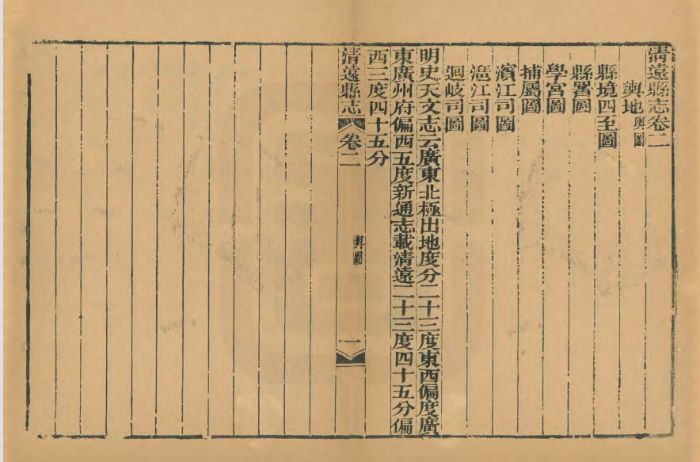 清遠縣志卷二
輿地輿圖
縣境四至圖
縣署圖
學宮圖
捕屬圖
濱江司圖
滘江司圖
迴岐司圖
明史天文志云廣東北極出地度分二十三度東西偏度廣
東廣州府偏西五度新通志載清遠二十三度四十五分偏
西三度四十五分
清遠縣志 卷二 輿圖 一